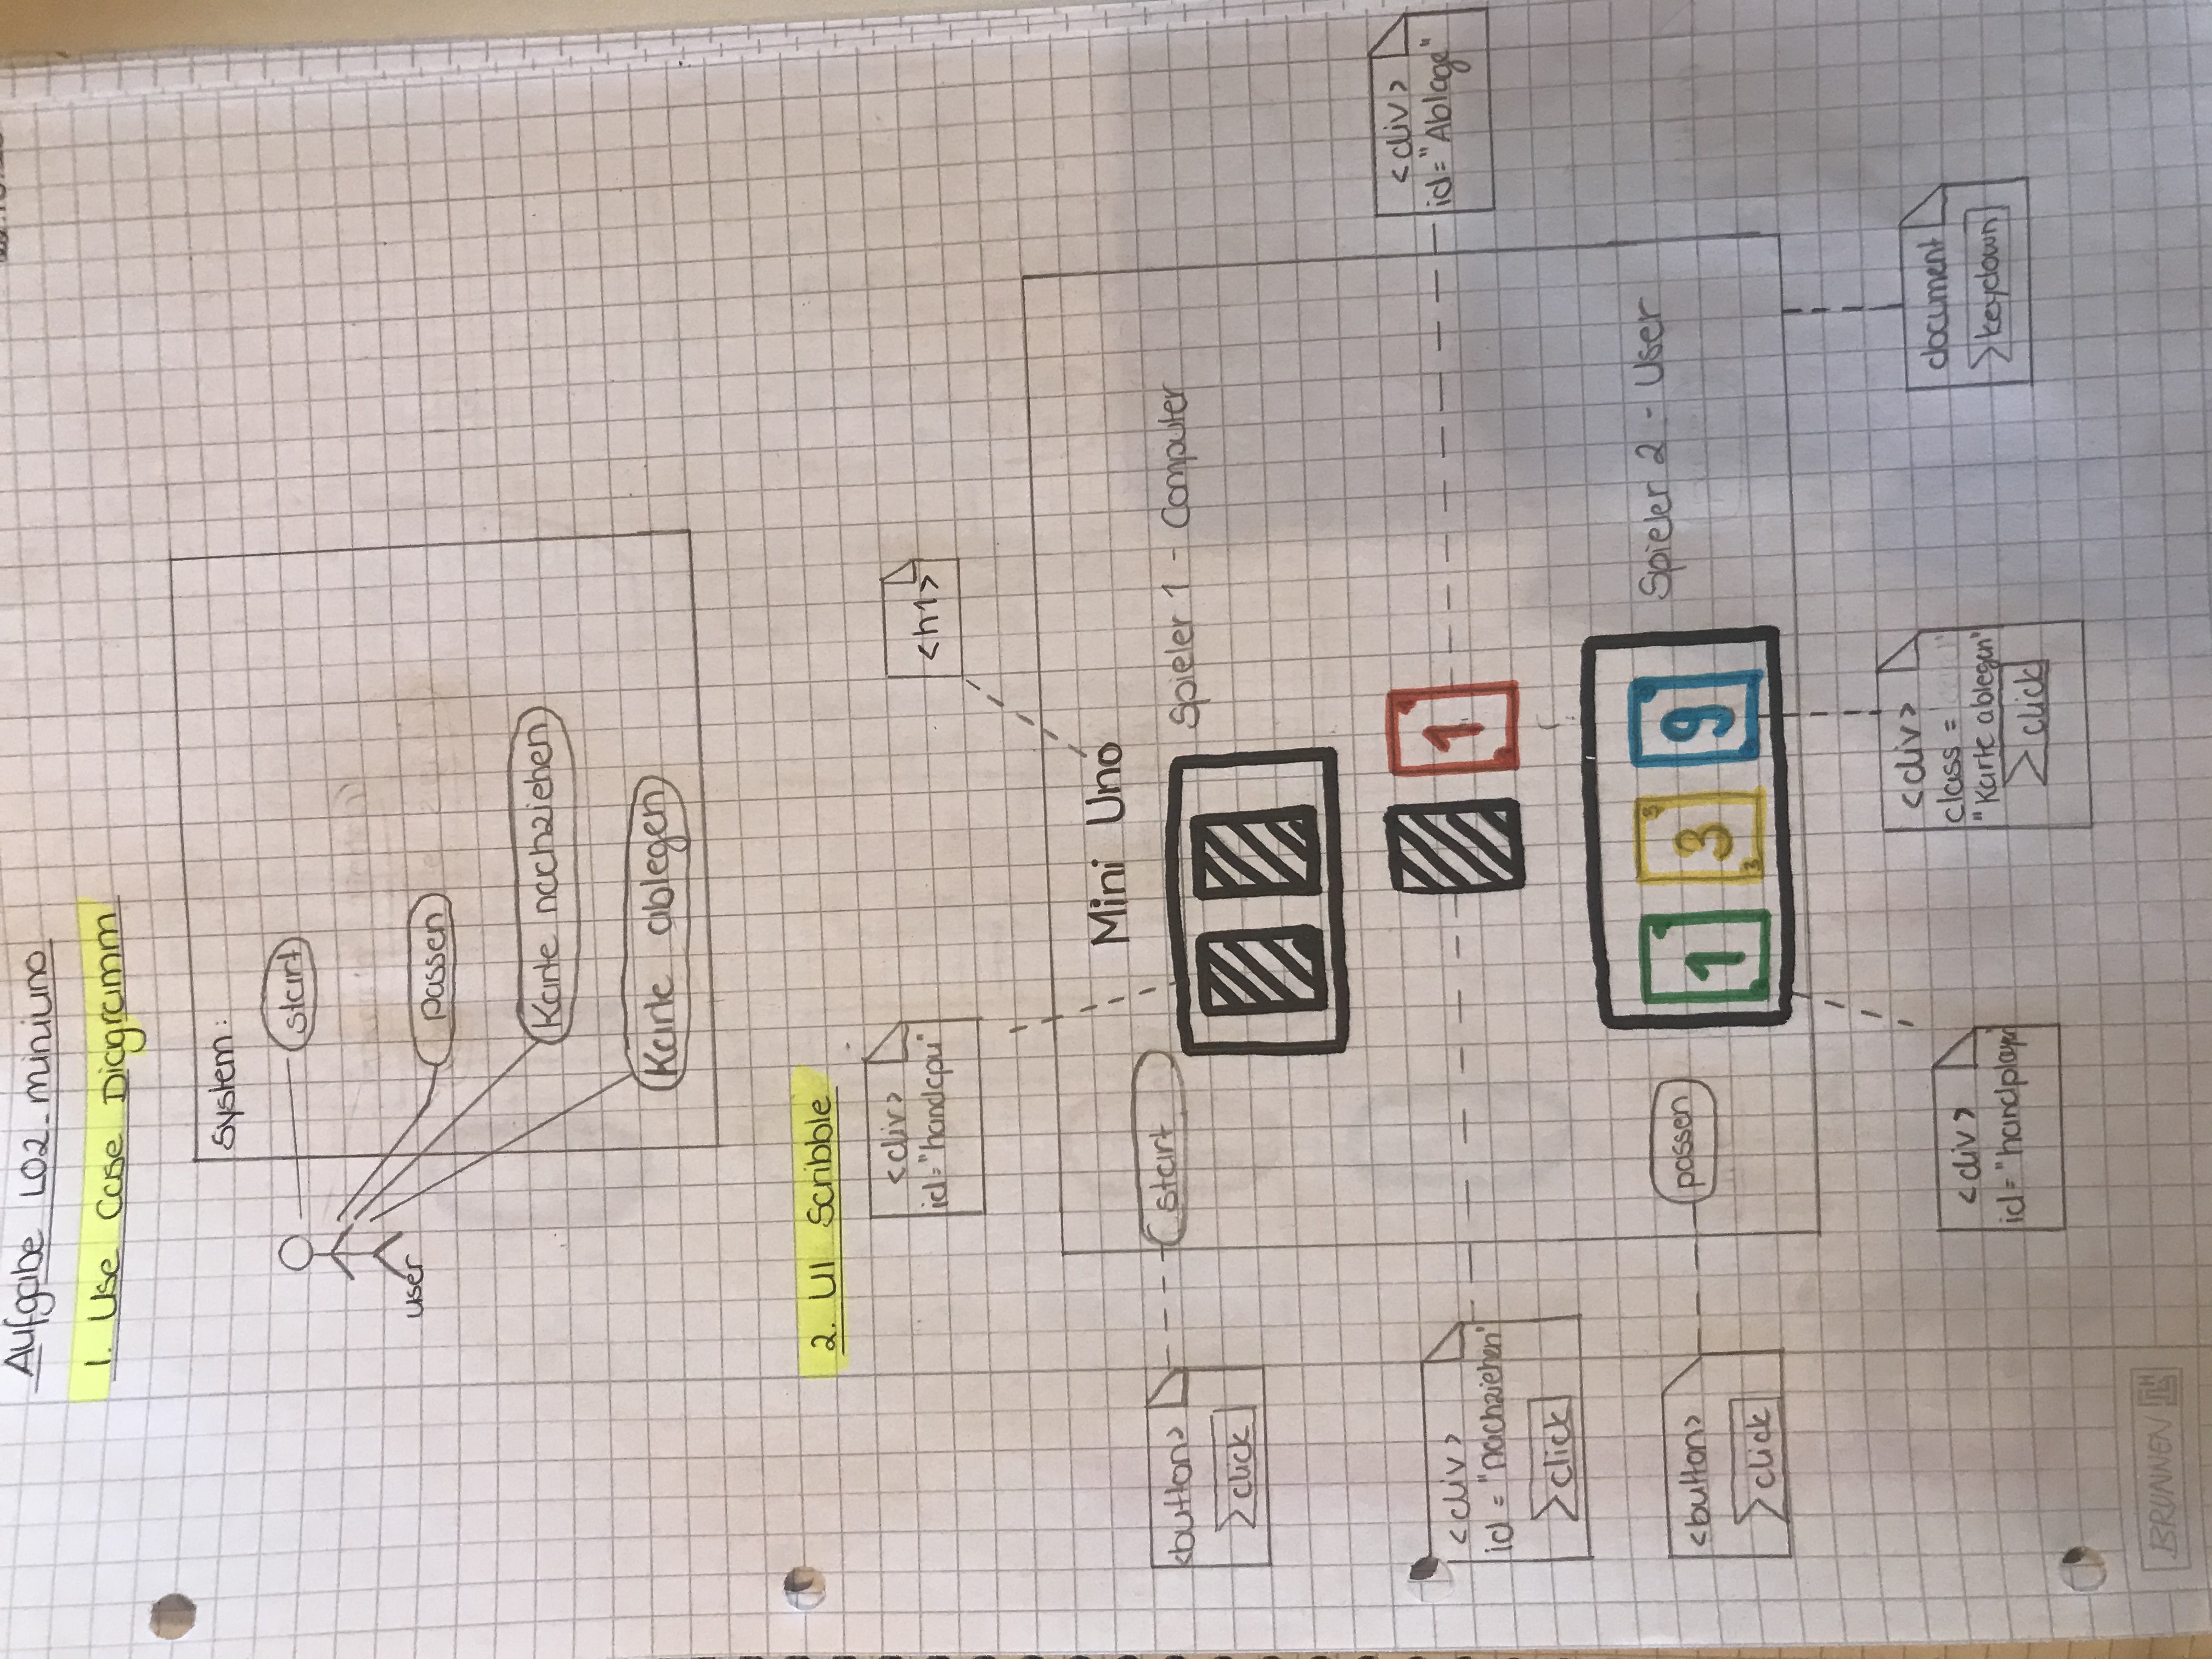 Aufgabe L02_miniuno
1. Use Case Diagramm
System:
start
user
passen
Karte nachziehen
Karte ablegen
2. UI Scribble
<div>
id="handcpu"
<h1>
Mini Uno
<button>
click
start
Spieler 1 - Computer
<div>
id = "nachziehen"
click
1
<div>
id="Ablage"
<button>
click
passen
1
3
3
3
9
Spieler 2 - User
<div>
id="handplayer
<div>
class =
"Karte ablegen"
click
document
keydown
BRUNNEN